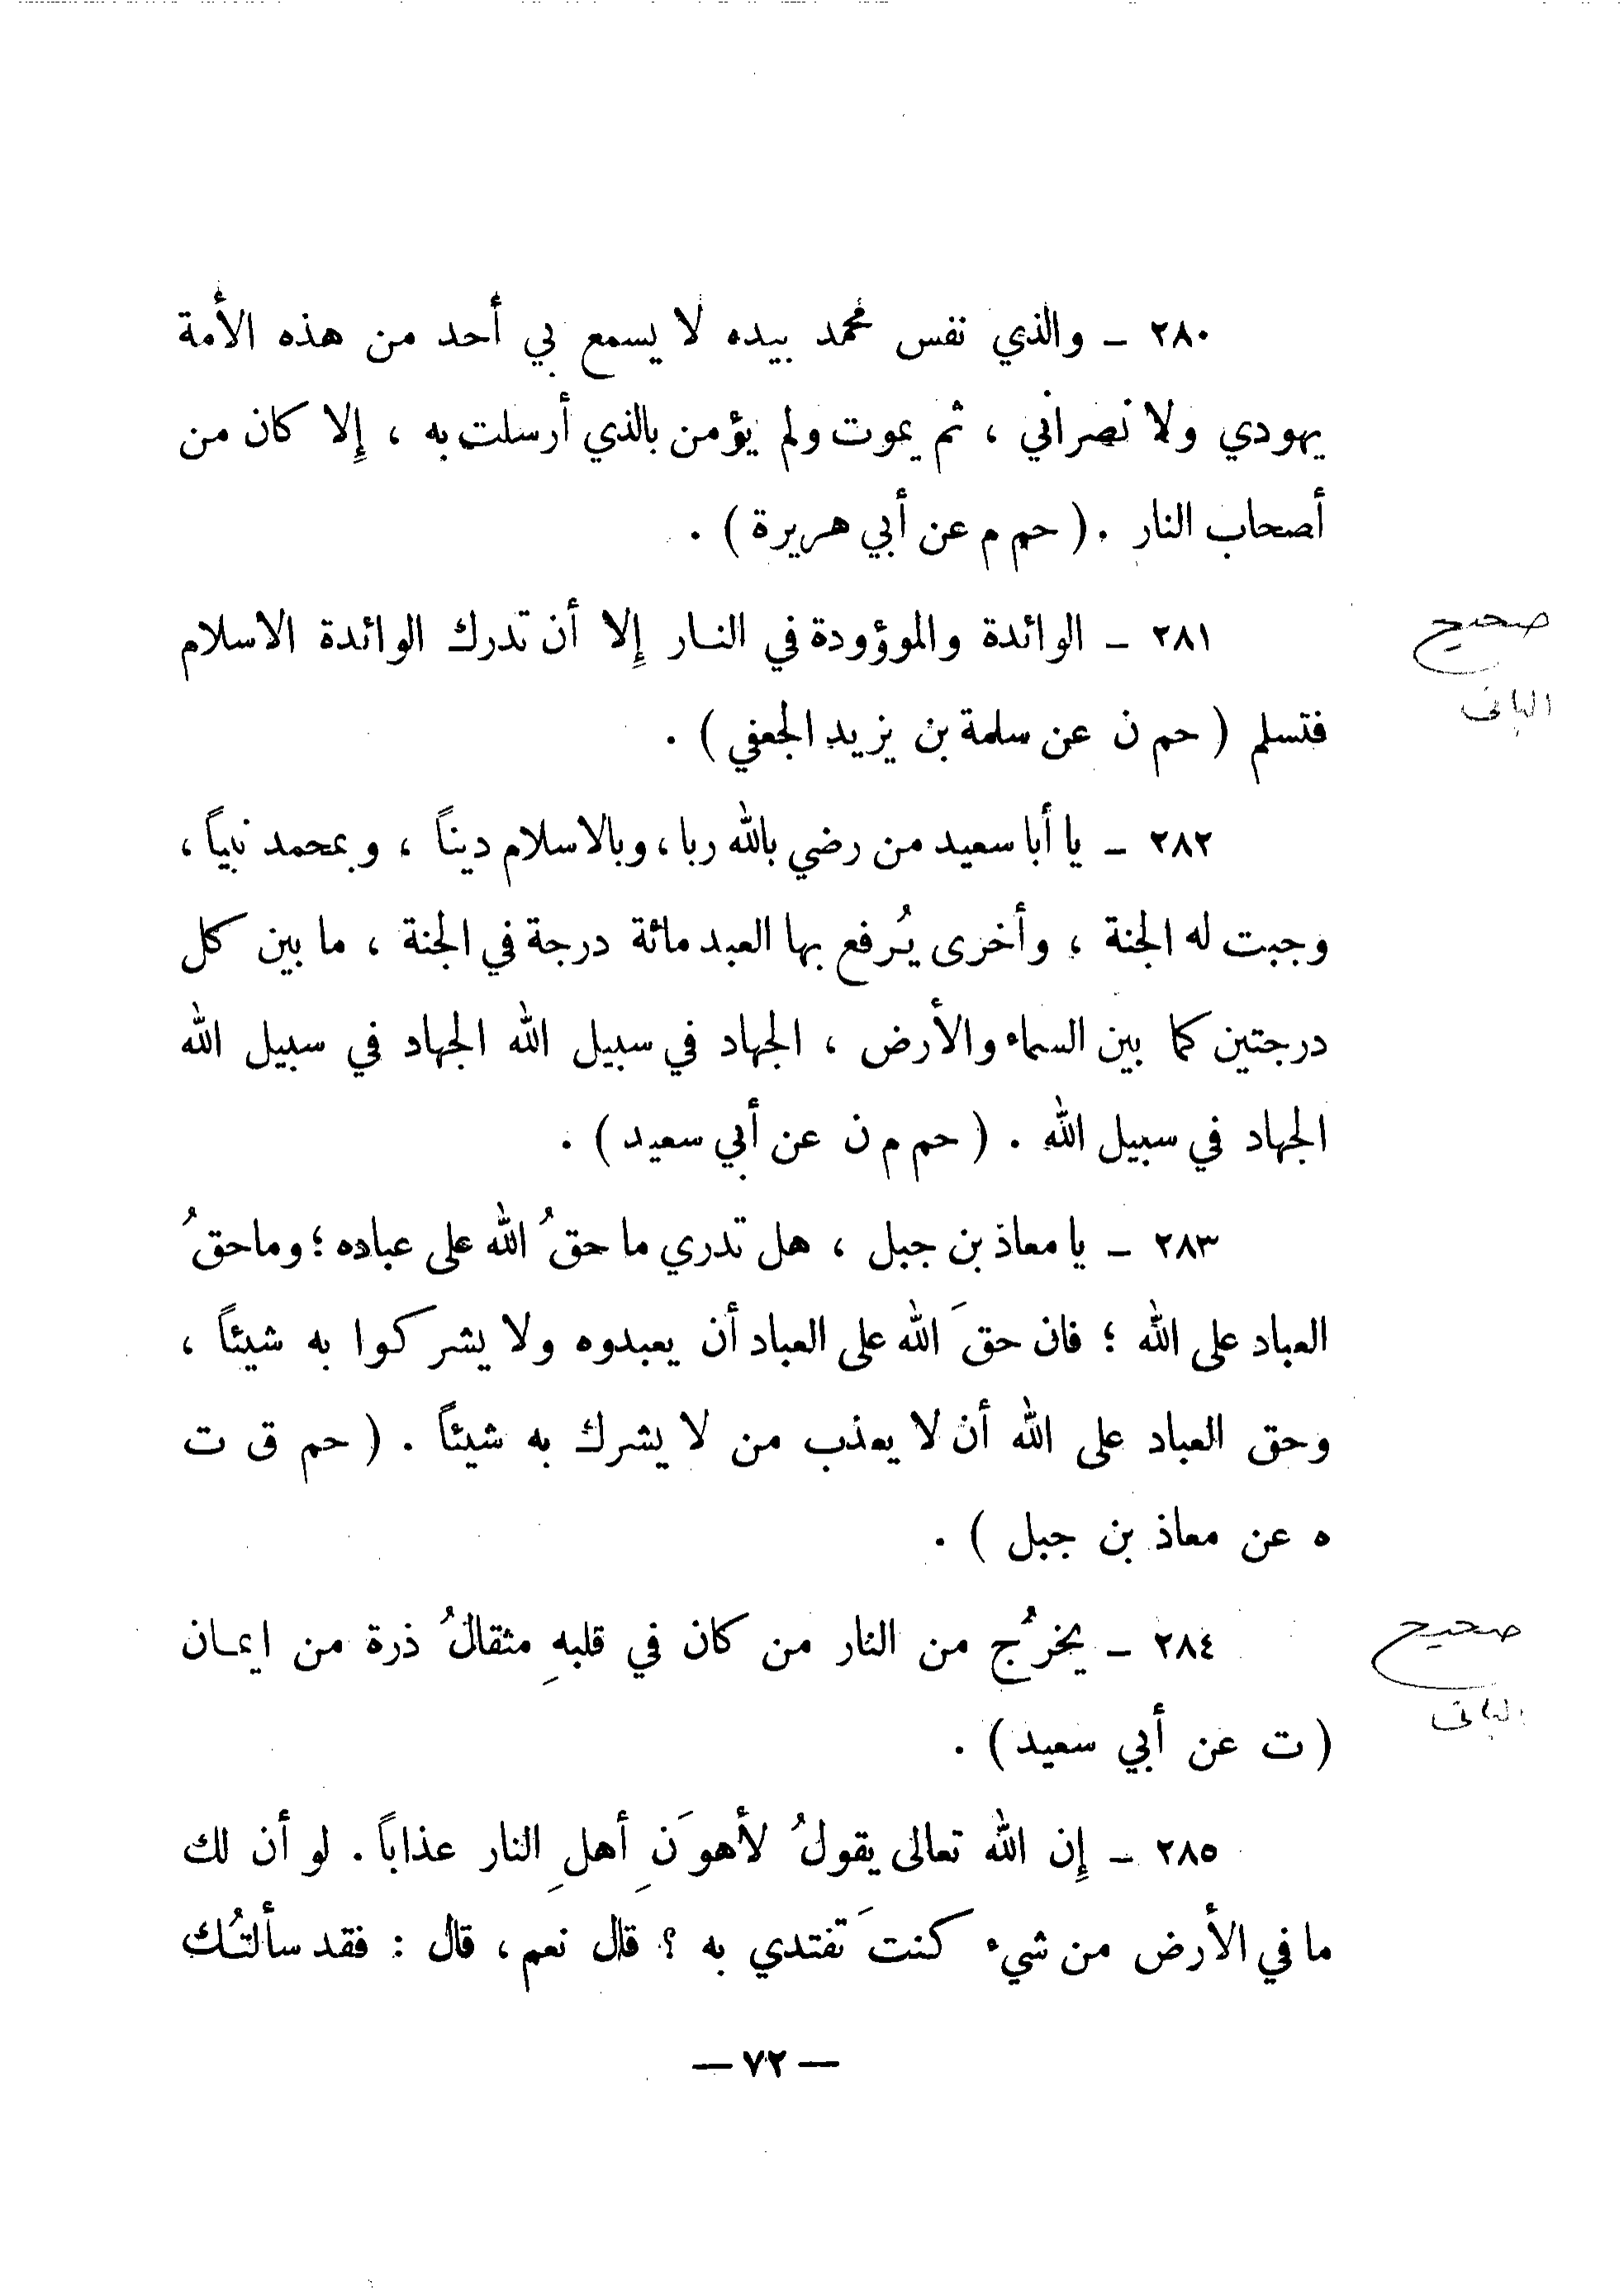 ٢٨٠ ـ والذي نفس محمد بيده لا يسمع بي أحد من هذه الأمة
يهودي ولا نصراني ، ثم يموت ولم يؤمن بالذي أرسلت به ، إلا كان من
أصحاب النار . ( حم م عن أبي هريرة ) .
٢٨١ ـ الوائدة والموؤودة في النار إلا أن تدرك الوائدة الاسلام
صحيح
البانى
فتسلم ( حم ن عن سلمة بن يزيد الجعفي ) .
٢٨٢ ـ يا أبا سعيد من رضي بالله ربا ، وبالاسلام ديناً ، وبمحمد نبياً ،
وجبت له الجنة ، وأخرى يُرفع بها العبد مائة درجة في الجنة ، ما بين كل
درجتين كما بين السماء والأرض ، الجهاد في سبيل الله الجهاد في سبيل الله
الجهاد في سبيل الله . ( حم م ن عن أبي سعيد ) .
٢٨٣ ـ يا معاذ بن جبل ، هل تدري ما حقُ الله على عباده ؛ وما حقُ
العباد على الله ؛ فان حقَ الله على العباد أن يعبدوه ولا يشركوا به شيئاً ،
وحق العباد على الله أن لا يعذب من لا يشرك به شيئاً . ( حم ق ت
ه عن معاذ بن جبل ) .
٢٨٤ ـ يخرُج من النار من كان في قلبهِ مثقالُ ذرة من ايمان
صحيح
البانى
( ت عن أبي سعيد ) .
٢٨٥ ـ إن الله تعالى يقولُ لأهوَنِ أهلِ النار عذاباً . لو أن لك
ما في الأرض من شيء كنتَ تفتدي به ؟ قال نعم ، قال : فقد سألتُك
— ٧٢ —